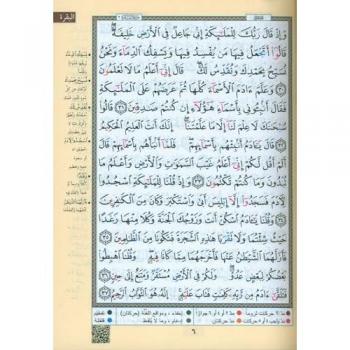 البقرة
وَإِذْ قَالَ رَبُّكَ لِلْمَلَٰٓئِكَةِ إِنِّى جَاعِلٌ فِى ٱلْأَرْضِ خَلِيفَةً
قَالُوٓا۟ أَتَجْعَلُ فِيهَا مَن يُفْسِدُ فِيهَا وَيَسْفِكُ ٱلدِّمَآءَ وَنَحْنُ
نُسَبِّحُ بِحَمْدِكَ وَنُقَدِّسُ لَكَ ۖ قَالَ إِنِّىٓ أَعْلَمُ مَا لَا تَعْلَمُونَ
٣٠ وَعَلَّمَ ءَادَمَ ٱلْأَسْمَآءَ كُلَّهَا ثُمَّ عَرَضَهُمْ عَلَى ٱلْمَلَٰٓئِكَةِ
فَقَالَ أَنۢبِـُٔونِى بِأَسْمَآءِ هَٰٓؤُلَآءِ إِن كُنتُمْ صَٰدِقِينَ ٣١ قَالُوا۟
سُبْحَٰنَكَ لَا عِلْمَ لَنَآ إِلَّا مَا عَلَّمْتَنَآ ۖ إِنَّكَ أَنتَ ٱلْعَلِيمُ ٱلْحَكِيمُ
٣٢ قَالَ يَٰٓـَٔادَمُ أَنۢبِئْهُم بِأَسْمَآئِهِمْ ۖ فَلَمَّآ أَنۢبَأَهُم بِأَسْمَآئِهِمْ قَالَ
أَلَمْ أَقُل لَّكُمْ إِنِّىٓ أَعْلَمُ غَيْبَ ٱلسَّمَٰوَٰتِ وَٱلْأَرْضِ وَأَعْلَمُ مَا
تُبْدُونَ وَمَا كُنتُمْ تَكْتُمُونَ ٣٣ وَإِذْ قُلْنَا لِلْمَلَٰٓئِكَةِ ٱسْجُدُوا۟
لِـَٔادَمَ فَسَجَدُوٓا۟ إِلَّآ إِبْلِيسَ أَبَىٰ وَٱسْتَكْبَرَ وَكَانَ مِنَ ٱلْكَٰفِرِينَ
٣٤ وَقُلْنَا يَٰٓـَٔادَمُ ٱسْكُنْ أَنتَ وَزَوْجُكَ ٱلْجَنَّةَ وَكُلَا مِنْهَا رَغَدًا
حَيْثُ شِئْتُمَا وَلَا تَقْرَبَا هَٰذِهِ ٱلشَّجَرَةَ فَتَكُونَا مِنَ ٱلظَّٰلِمِينَ
٣٥ فَأَزَلَّهُمَا ٱلشَّيْطَٰنُ عَنْهَا فَأَخْرَجَهُمَا مِمَّا كَانَا فِيهِ ۖ وَقُلْنَا ٱهْبِطُوا۟
بَعْضُكُمْ لِبَعْضٍ عَدُوٌّ ۖ وَلَكُمْ فِى ٱلْأَرْضِ مُسْتَقَرٌّ وَمَتَٰعٌ إِلَىٰ حِينٍ ٣٦
فَتَلَقَّىٰٓ ءَادَمُ مِن رَّبِّهِۦ كَلِمَٰتٍ فَتَابَ عَلَيْهِ ۚ إِنَّهُۥ هُوَ ٱلتَّوَّابُ ٱلرَّحِيمُ ٣٧
٦